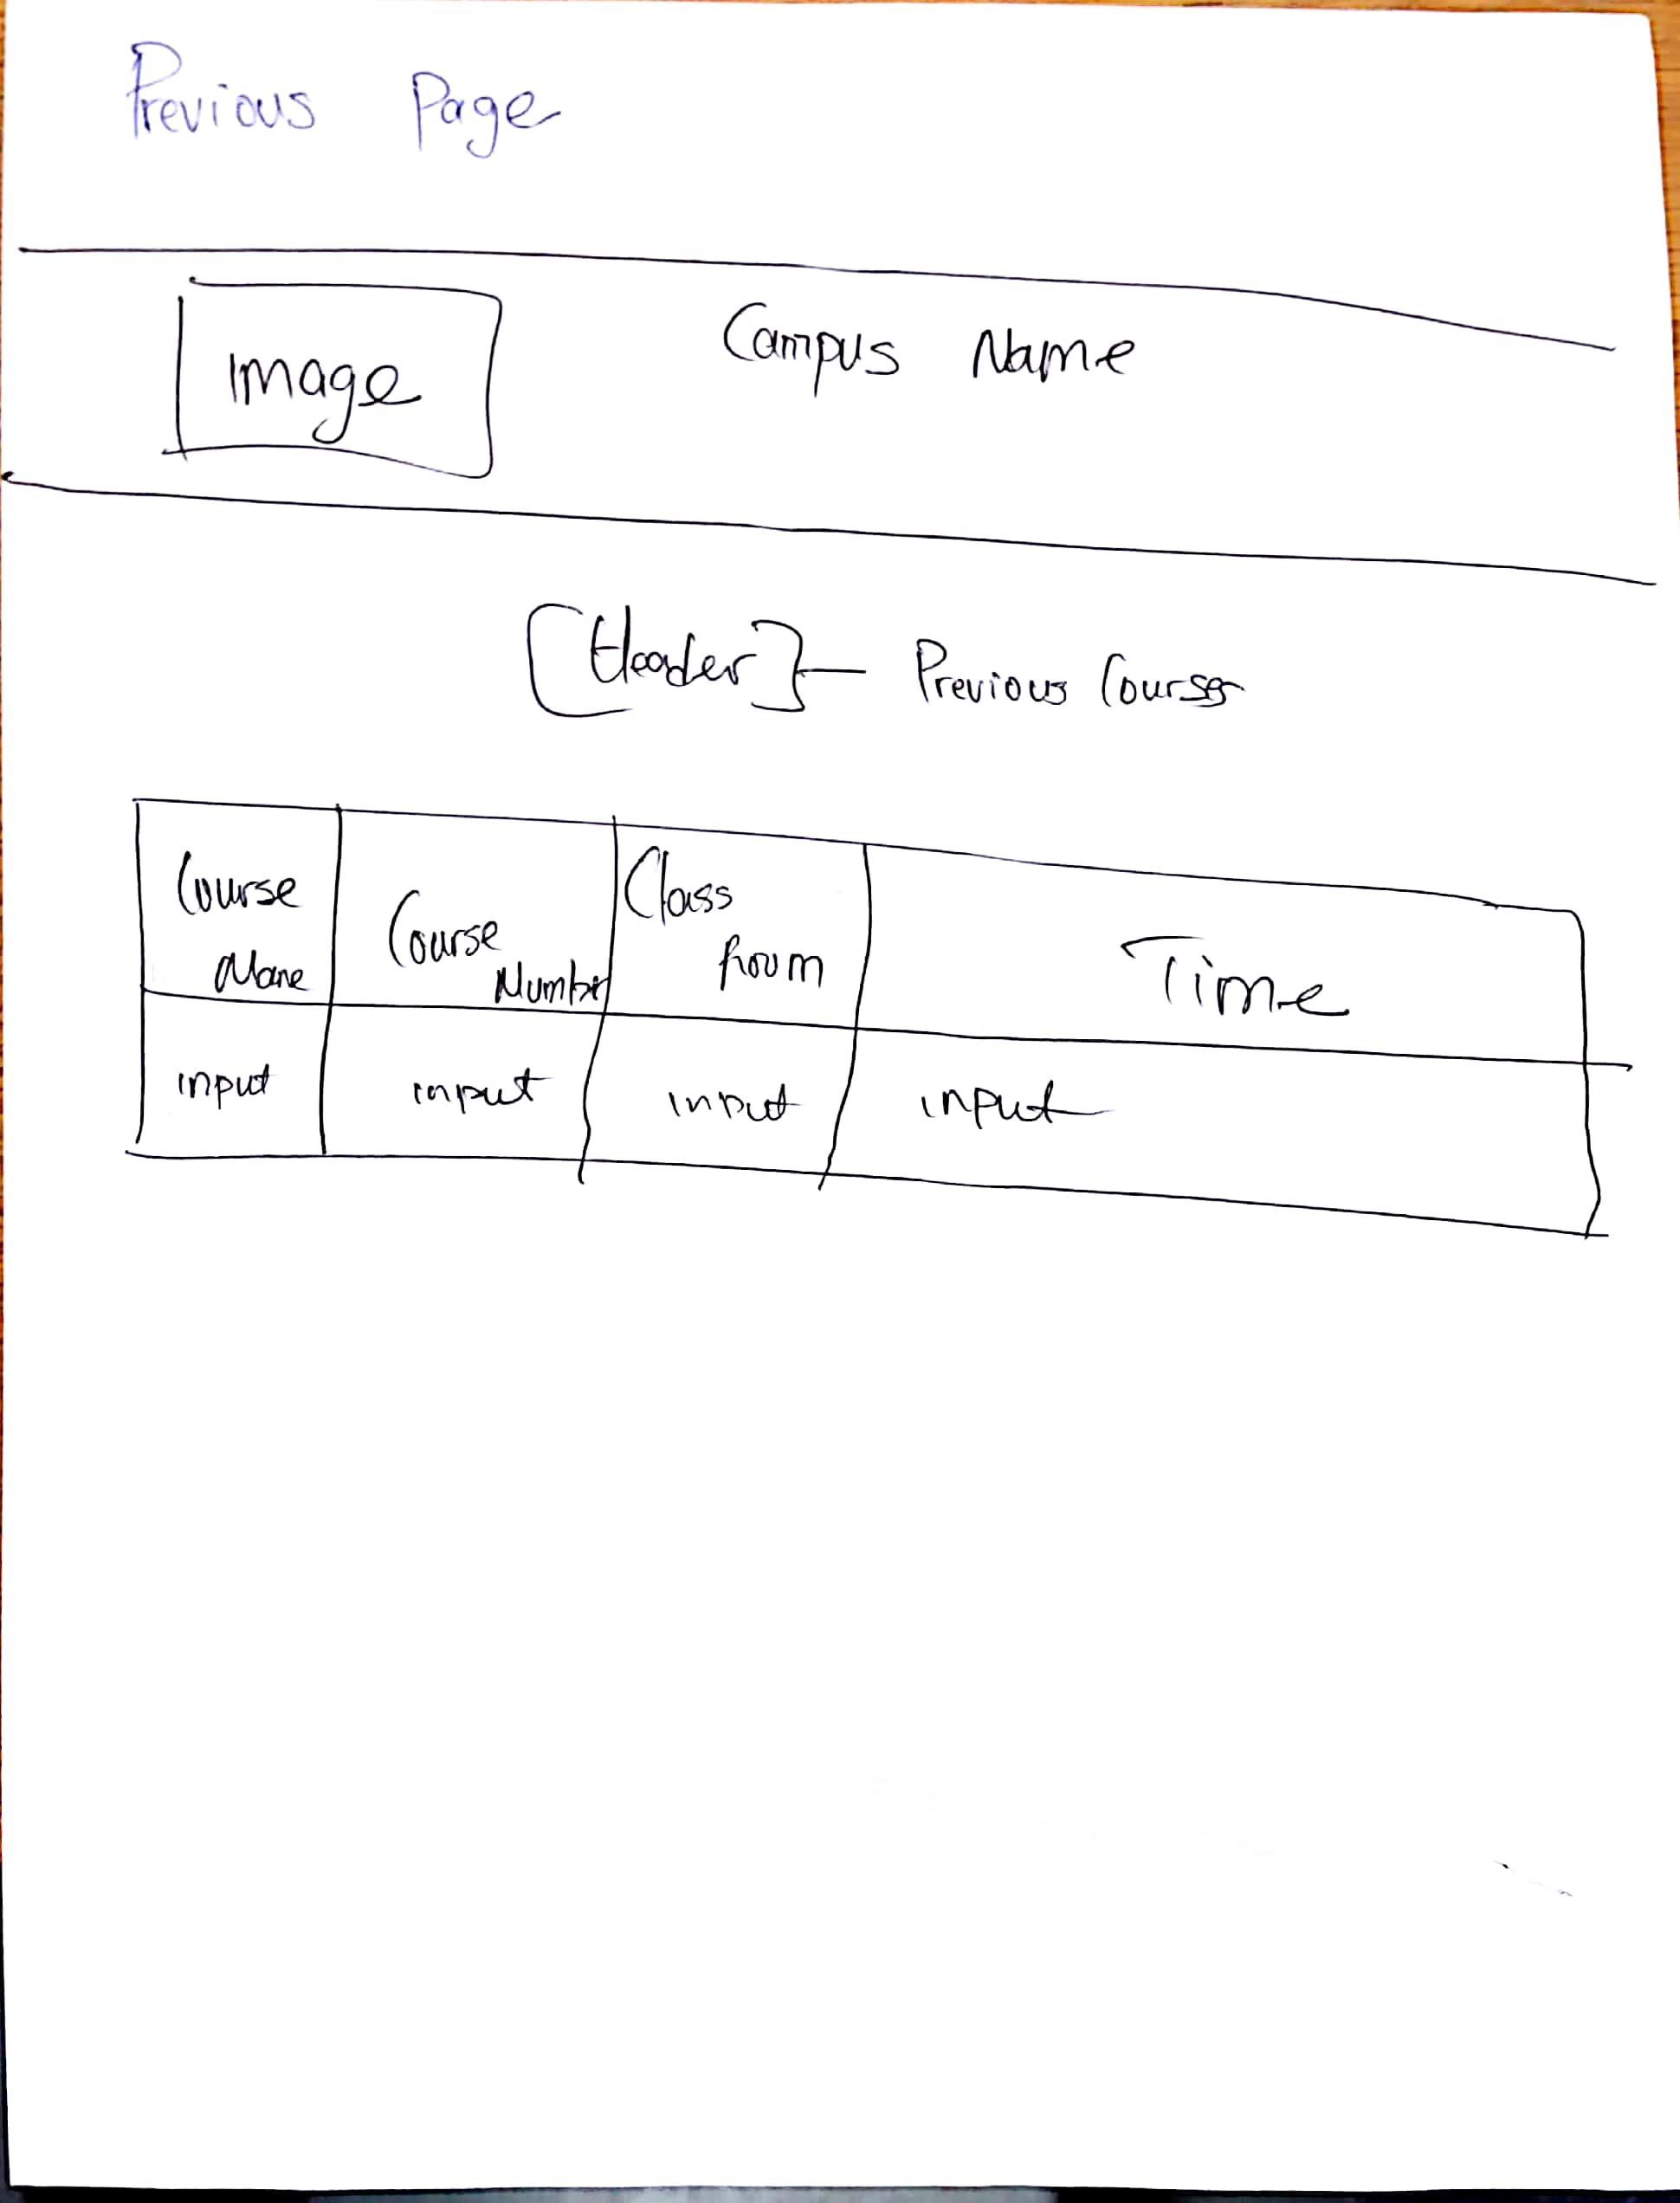 Previous Page
Image
Campus Name
[Header]— Previous Courses
Course Name
Course Number
Class Room
Time
input
input
input
input